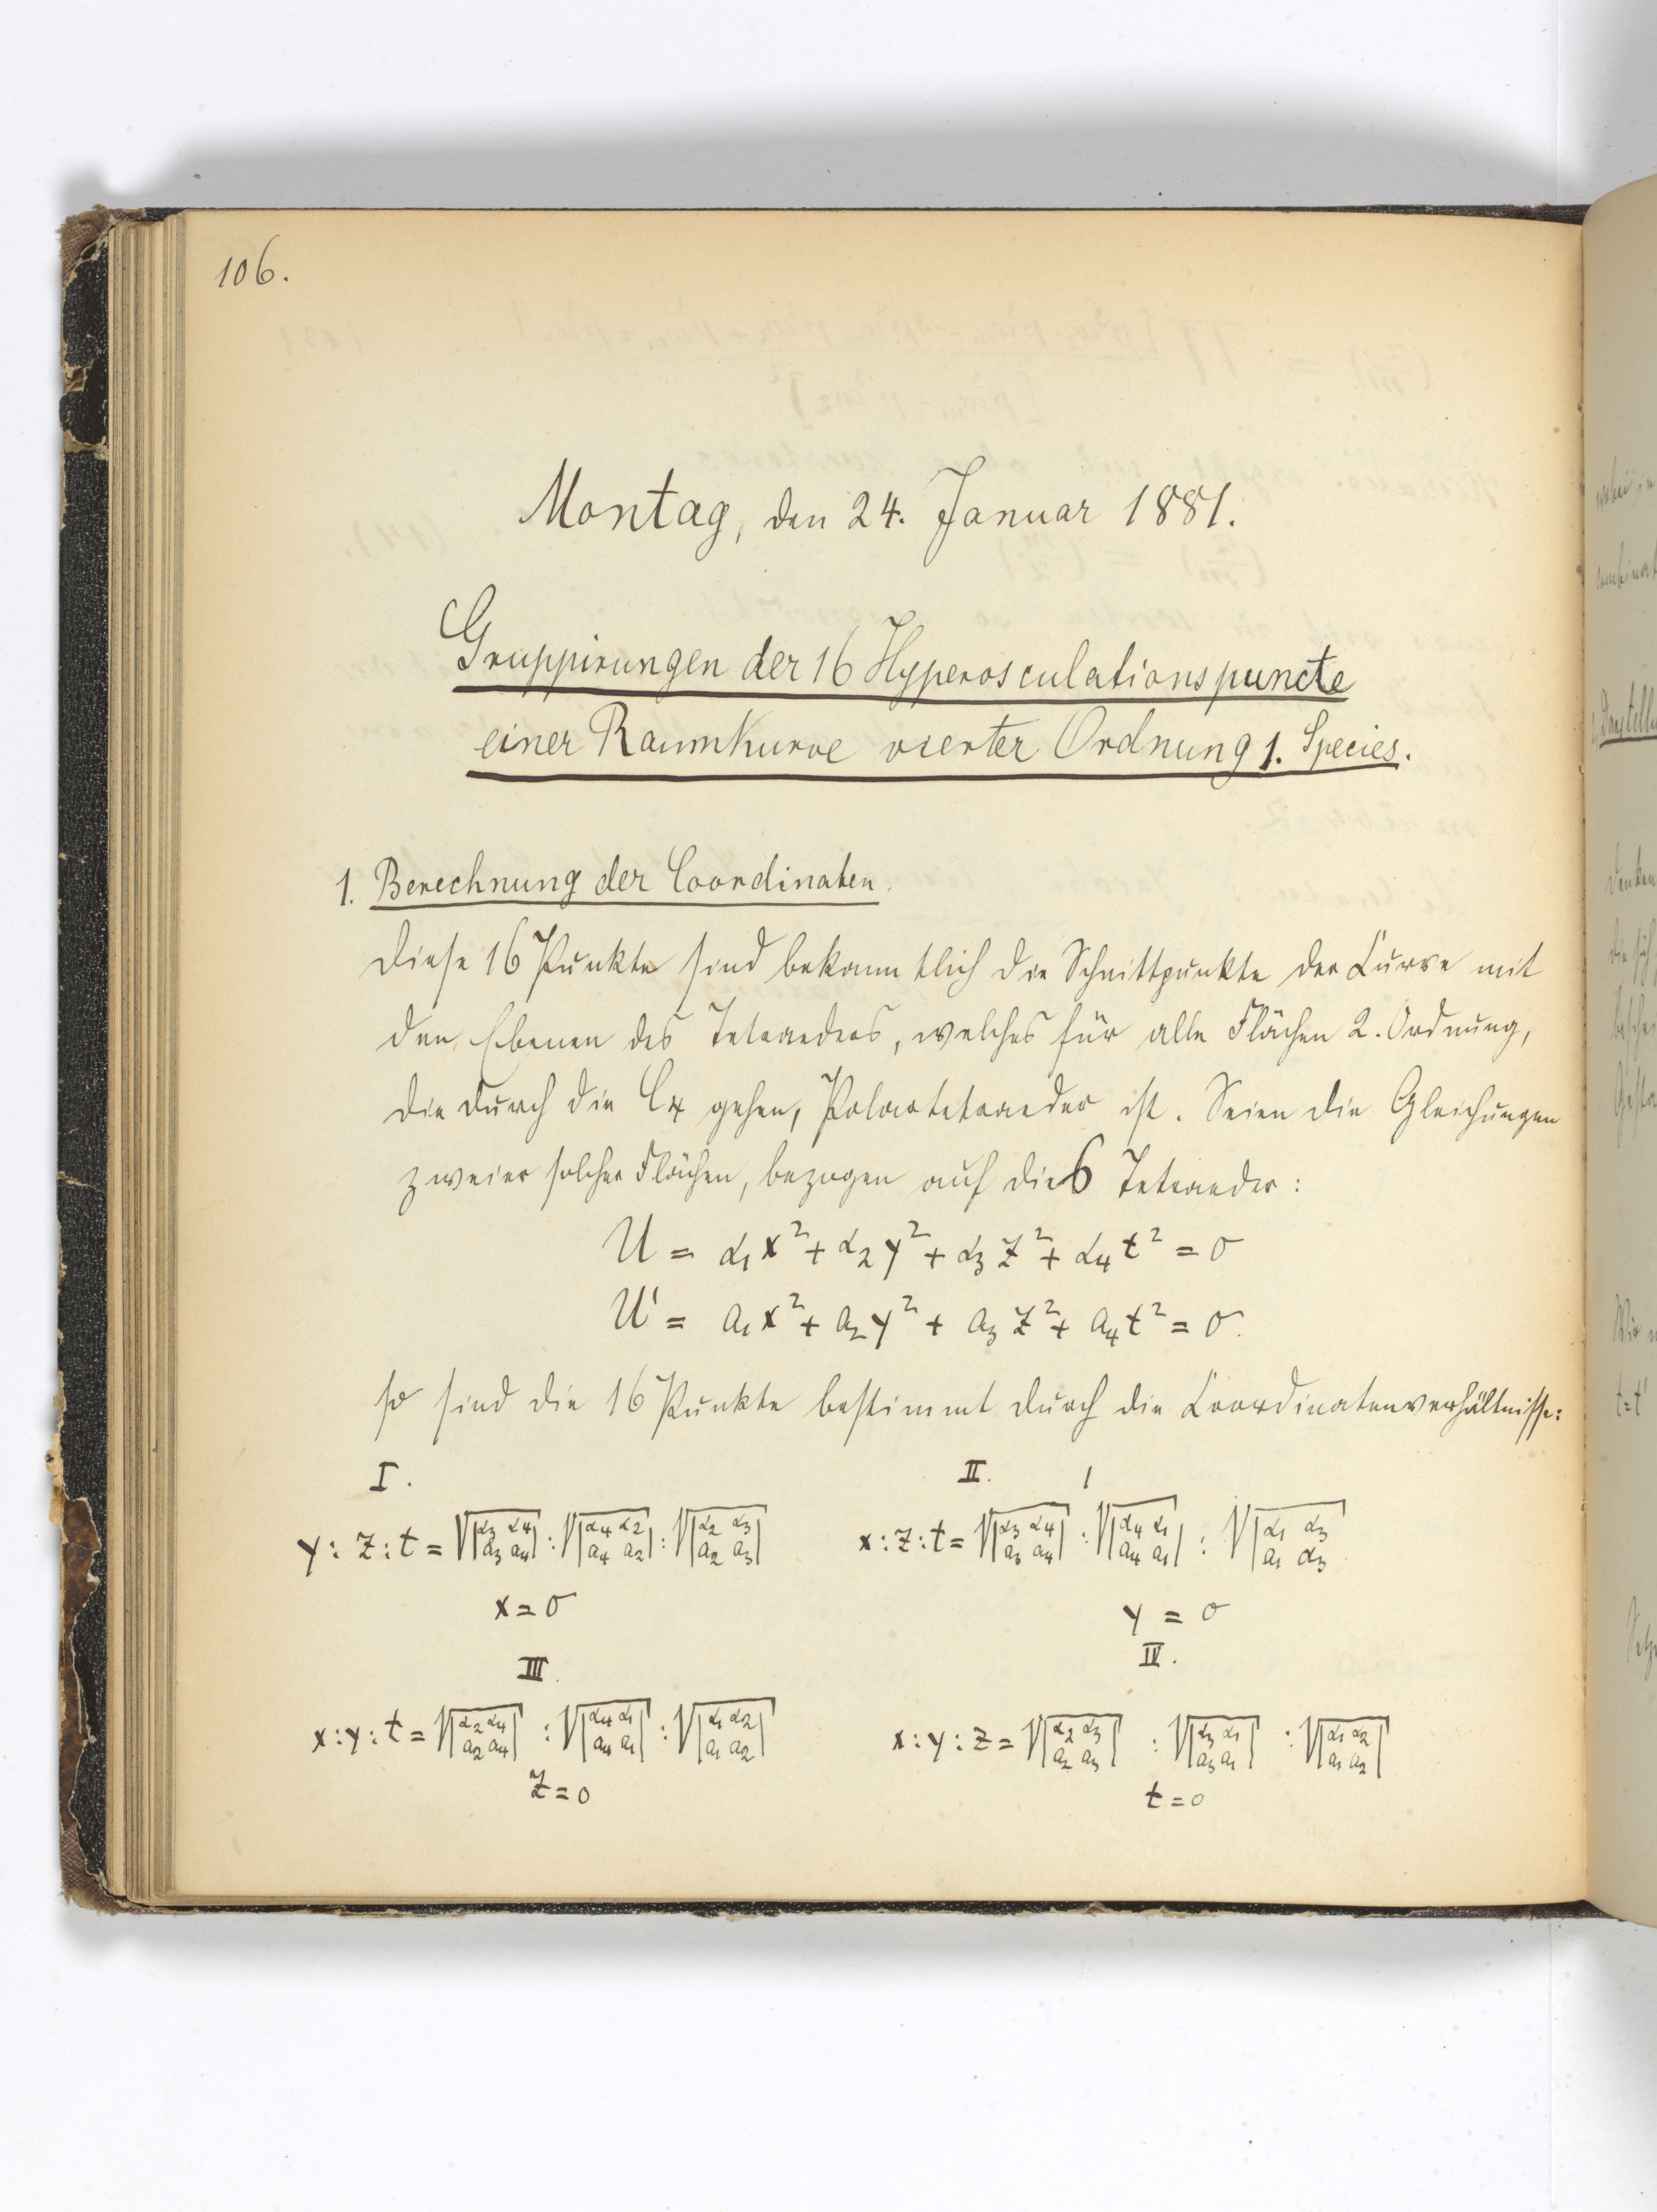 106.
Montag, den 24. Januar 1881.
Gruppirungen der 16 Hyperosculationspuncte
einer Raumkurve vierter Ordnung 1. Species.
1. Berechnung der Coordinaten.
Diese 16 Punkte sind bekanntlich die Schnittpunkte der Curve mit
den Ebenen des Tetraeders, welches für alle Flächen 2. Ordnung,
die durch die C₄ gehen, Polartetraeder ist. Seien die Gleichungen
zweier solcher Flächen, bezogen auf dies Tetraeder:
U = α₁x² + α₂y² + α₃z² + α₄t² = 0
U' = a₁x² + a₂y² + a₃z² + a₄t² = 0.
so sind die 16 Punkte bestimmt durch die Coordinatenverhältnisse:
I. II.
y : z : t = √|α₃ α₄; a₃ a₄| : √|α₄ α₂; a₄ a₂| : √|α₂ α₃; a₂ a₃| x : z : t = √|α₃ α₄; a₃ a₄| : √|α₄ α₁; a₄ a₁| : √|α₁ α₃; a₁ α₃|
x = 0 y = 0
III. IV.
x : y : t = √|α₂ α₄; a₂ a₄| : √|α₄ α₁; a₄ a₁| : √|α₁ α₂; a₁ a₂| x : y : z = √|α₂ α₃; a₂ a₃| : √|α₃ α₁; a₃ a₁| : √|α₁ α₂; a₁ a₂|
z = 0 t = 0